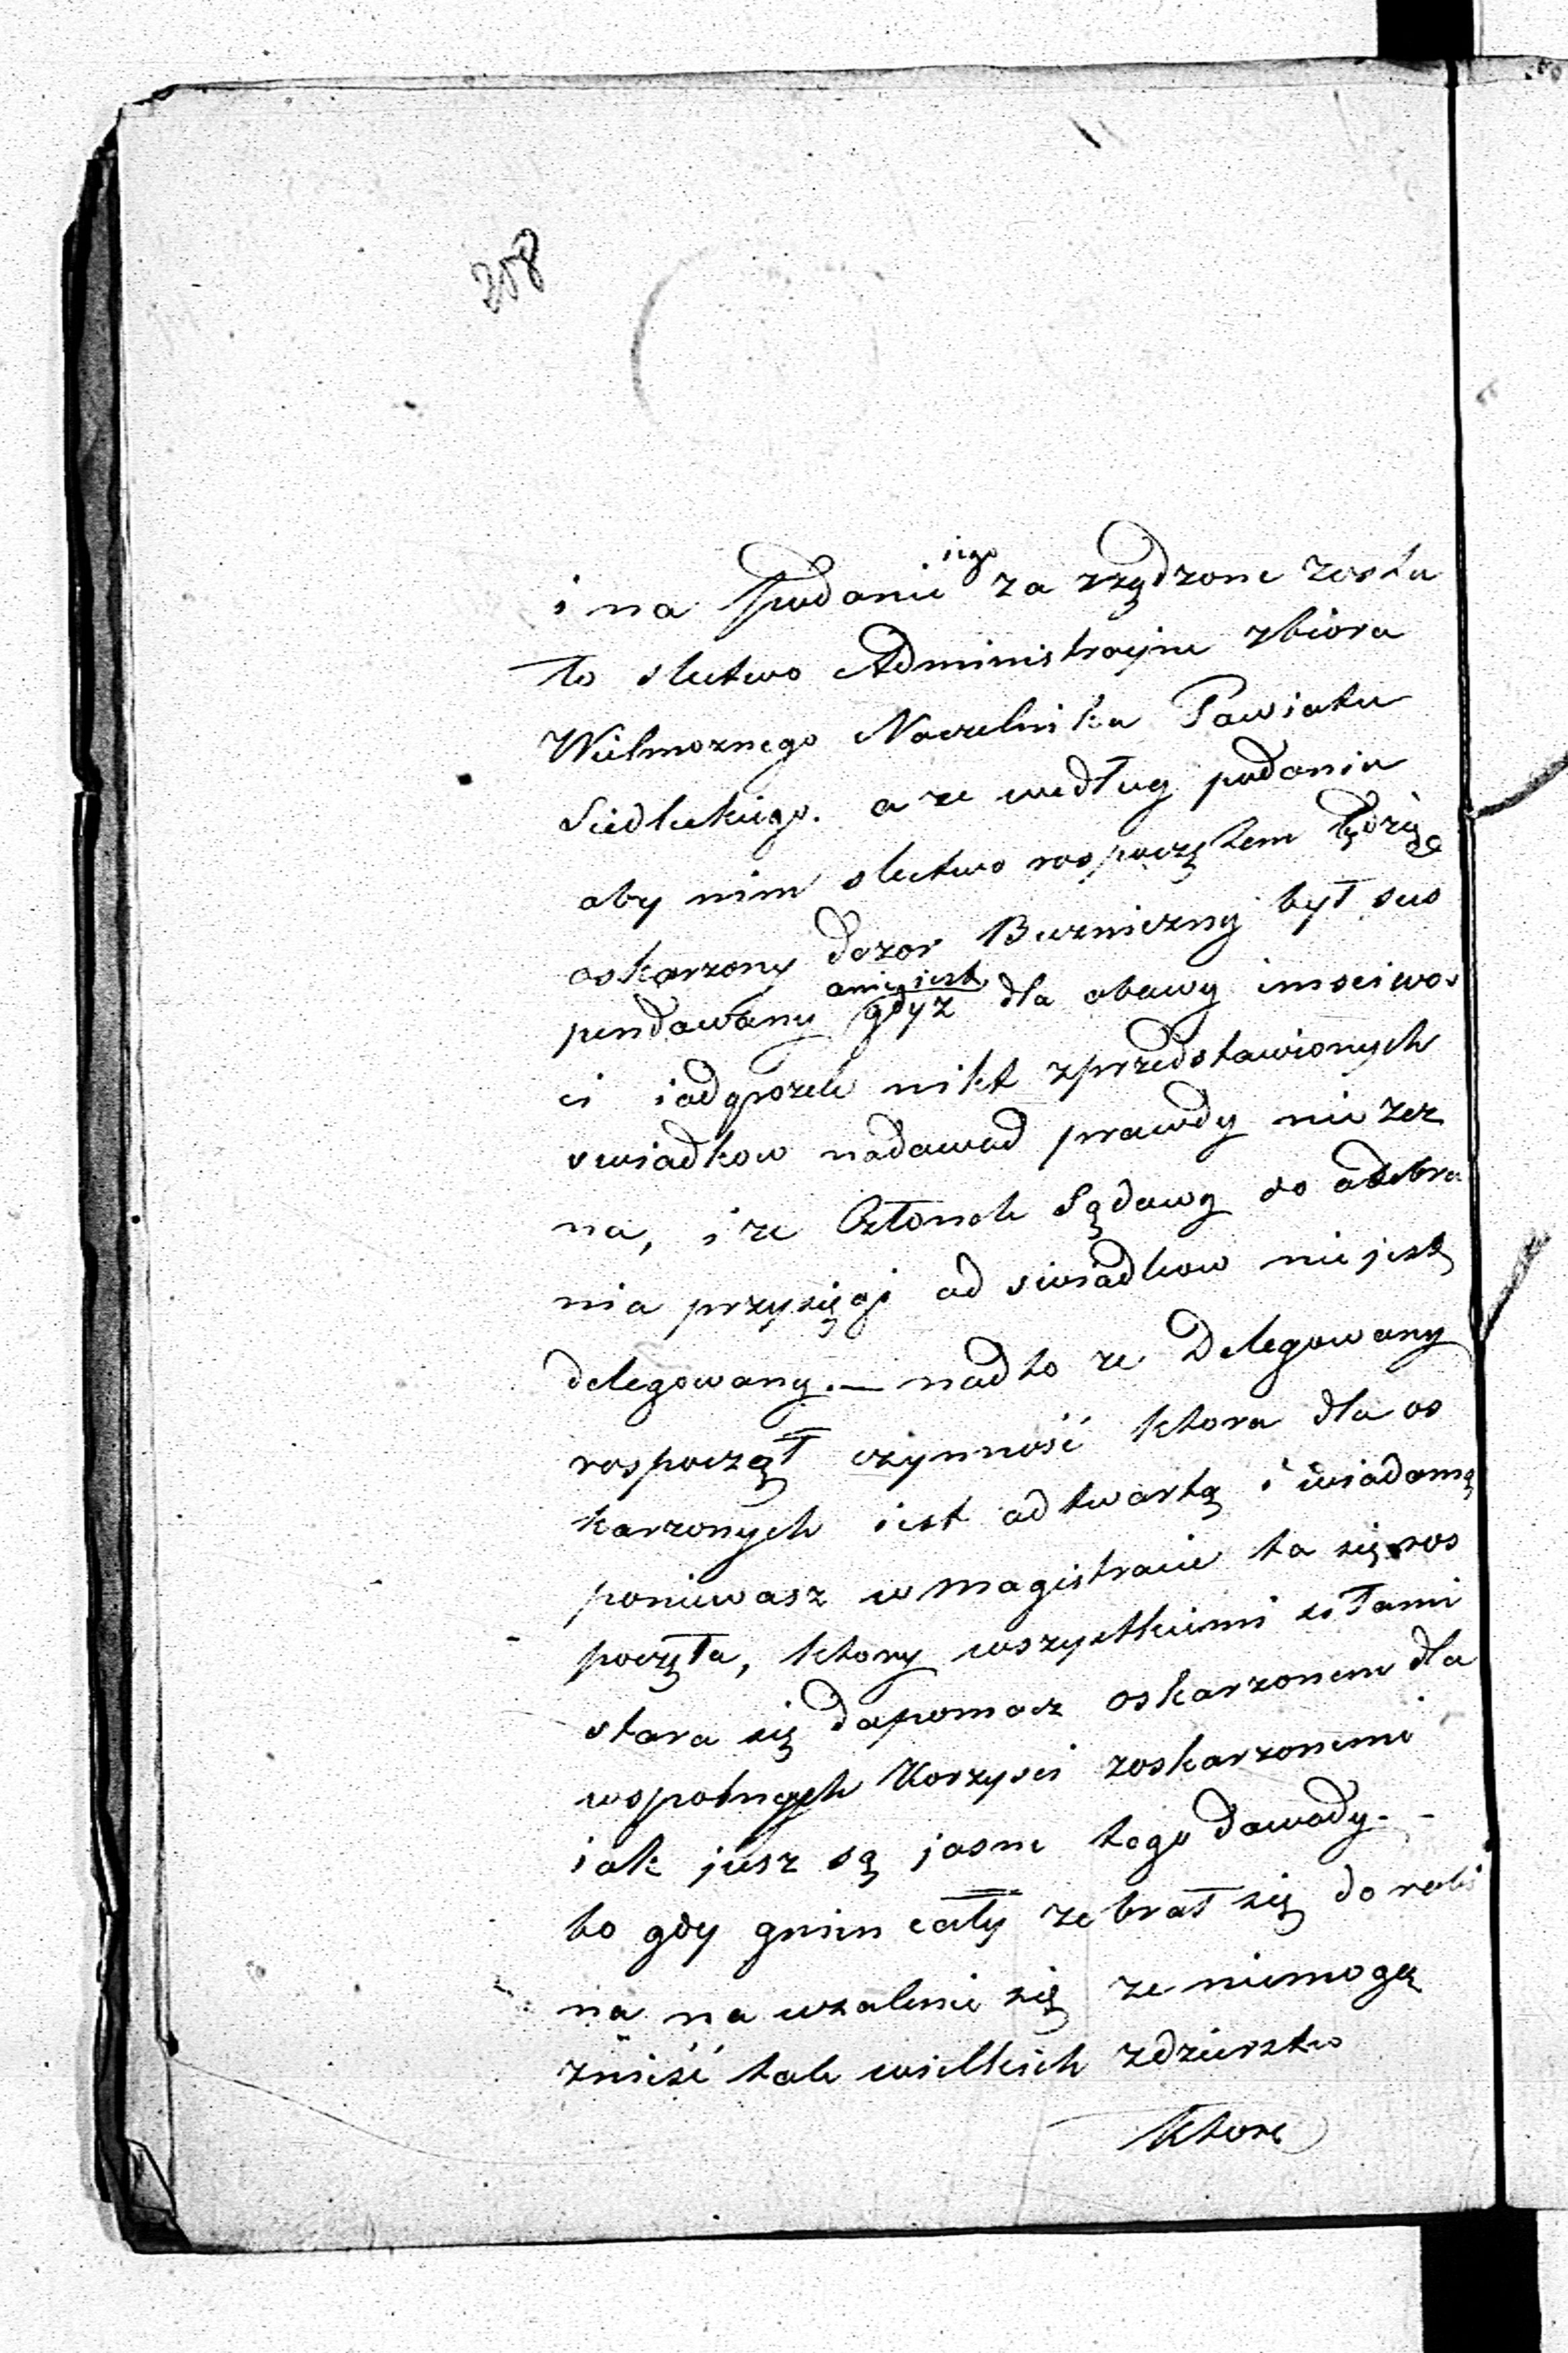 208
i na podanie iego za rządzone zosta
ło sledtwo Administrayne zbiora
Wielmoznego Naczelnika Powiatu
Siedleckiego. a ze według podania
aby nim sledtwo rospoczętem będzie
oskarzony dozor Buzniczny był sus
pendowany a nie jest gdyz dla obawy imsciwos
ci i odgrozek nikt zprzedstawionych
swiadkow nadowod prawdy nie zez
na, i ze Członek Sądowy do odebra
nia przysięgi od swiadkow nie jest
delegowany. — nadto ze Delegowany
rospoczął czynność ktora dla os
karzonych iest odtwartą i wiadomą
poniewasz w magistracie ta się ros
poczęła, ktory wszystkiemi siłami
stara się dopomocz oskarzonem dla
wspolnych Korzysci zoskarzonemi
iak jusz są jasne tego dowody. -
bo gdy gmin cały zebrał się do rabi
na na uzalenie się ze niemogą
znieść tak wielkich zdzierstw
Ktore